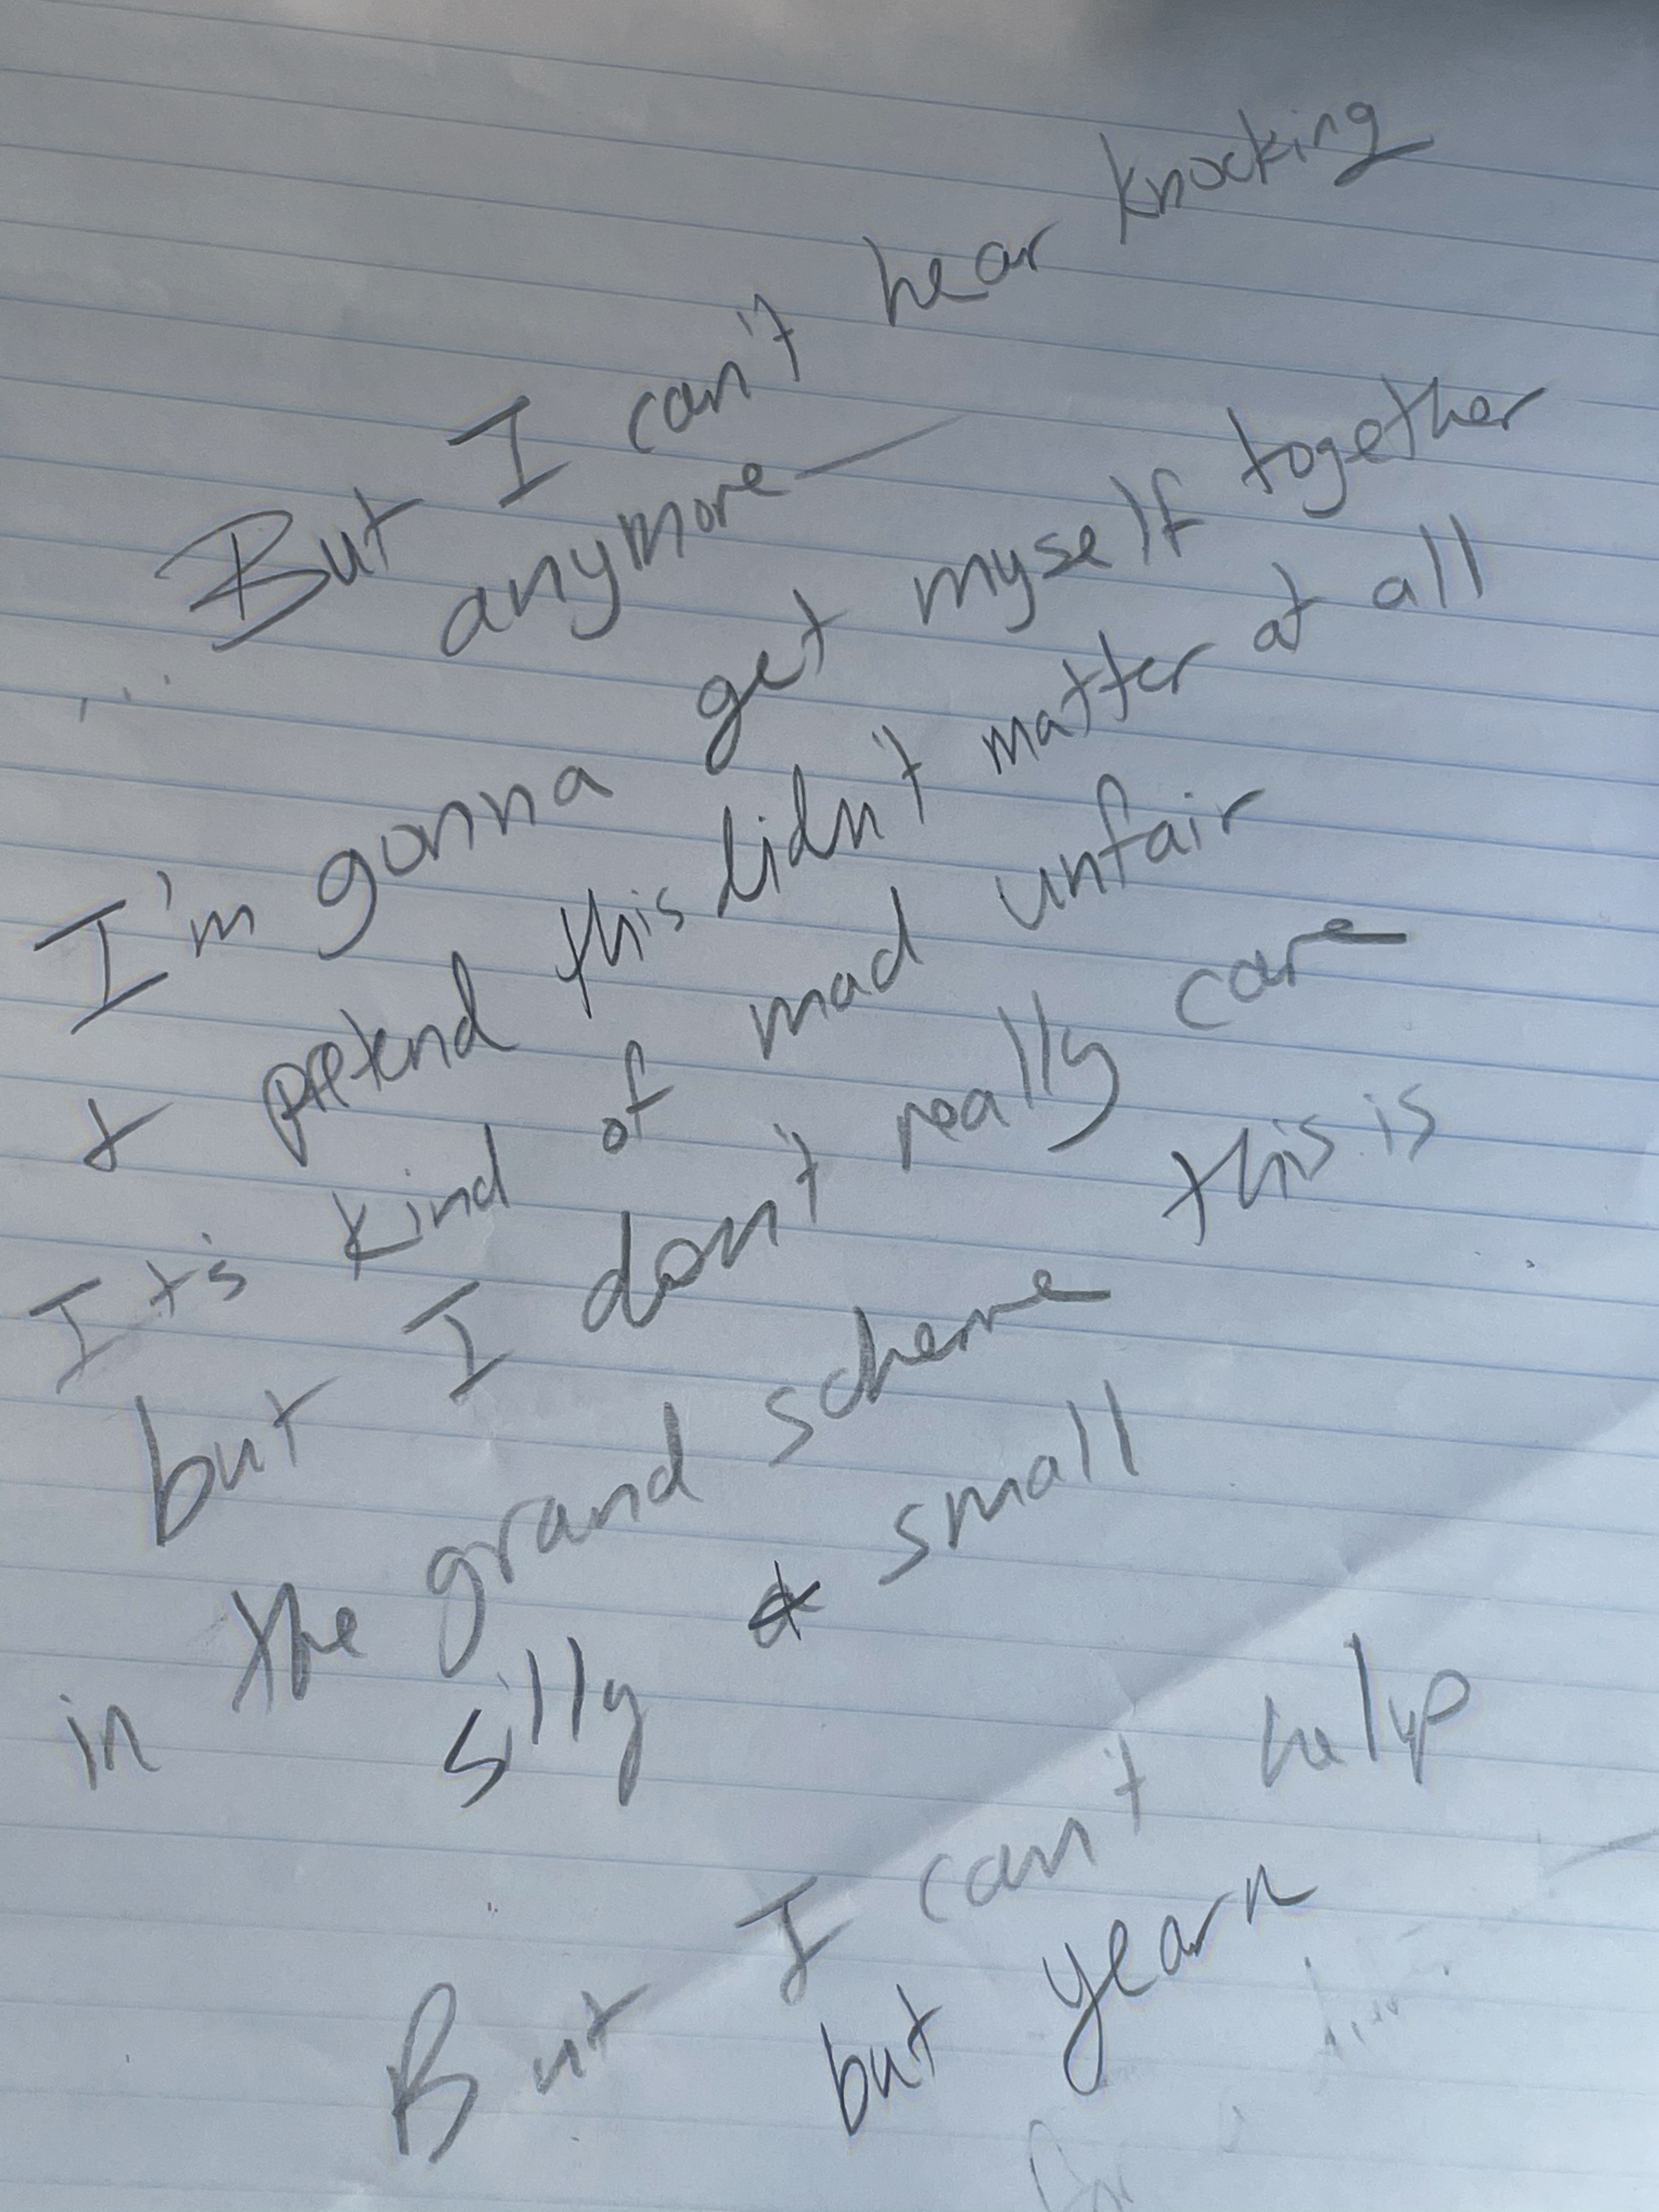 But I can't hear knocking
anymore —
I'm gonna get myself together
& pretend this didn't matter at all
It's kind of mad unfair
but I don't really care
in the grand scheme this is
silly & small
But I can't help
but yearn